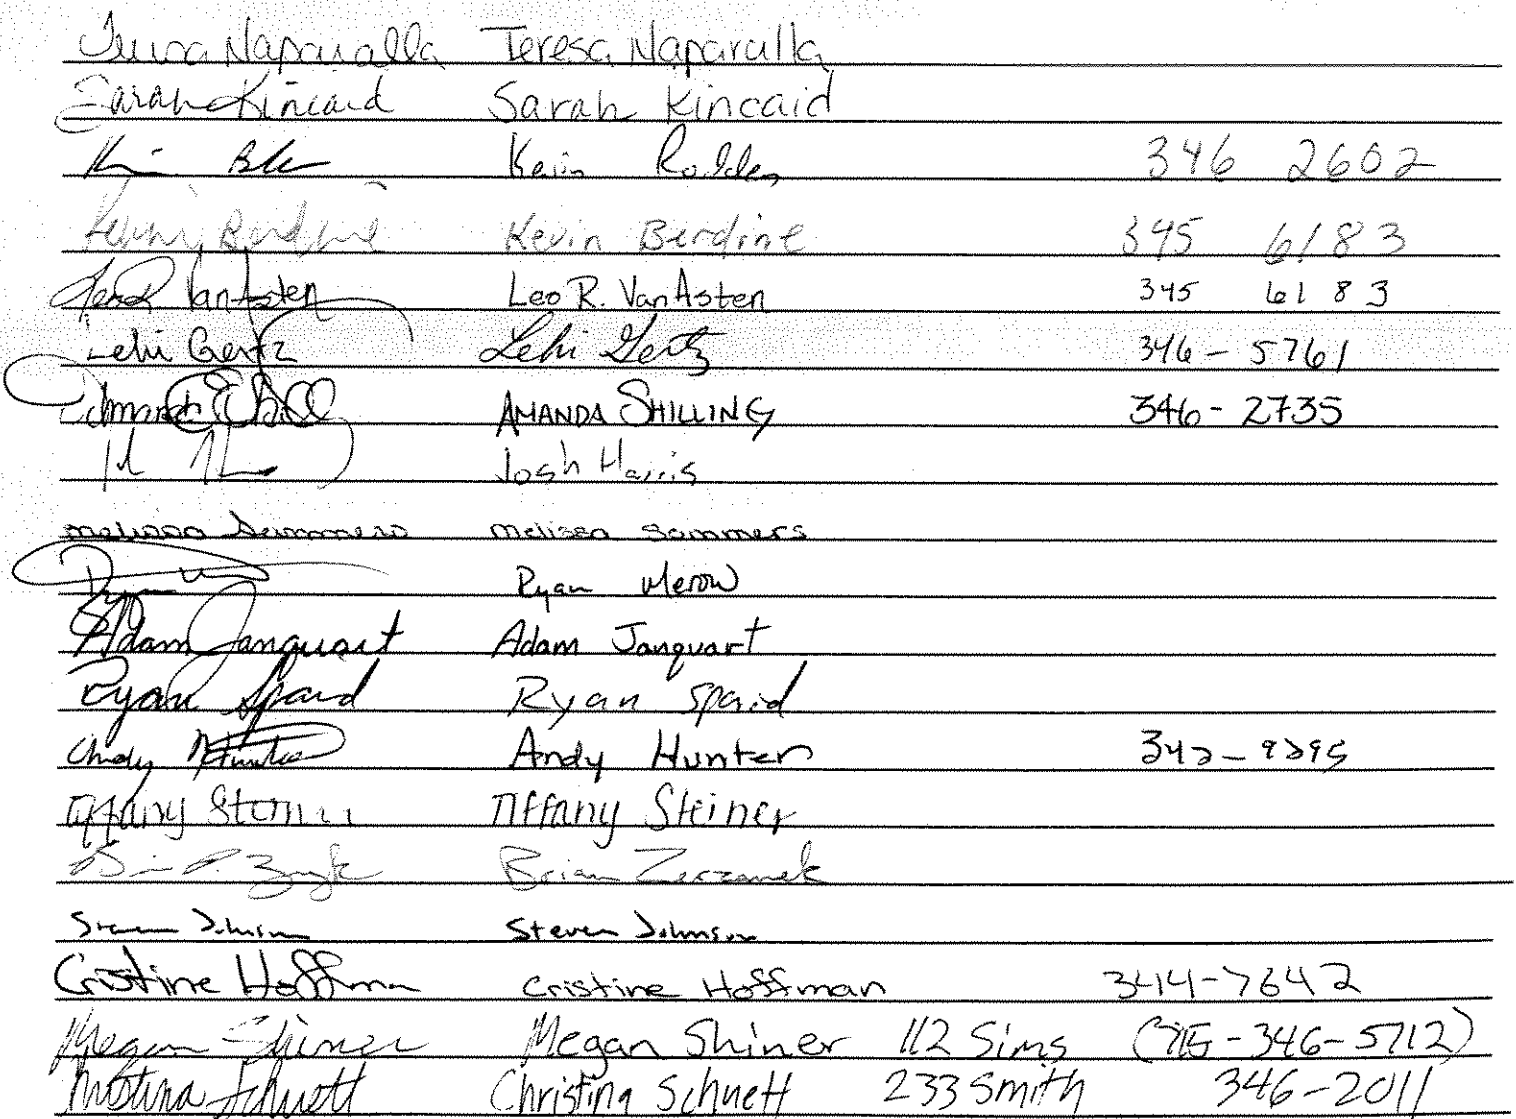 Teresa Naparalla Teresa Naparalla
Sarah Kincaid Sarah Kincaid
Kevin 346 2602
Kevin Berdine Kevin Berdine 345 6183
Leo R VanAsten Leo R. VanAsten 345 6183
Lehi Gertz Lehi Gertz 346-5761
Amanda AMANDA SHILLING 346-2735
Josh Harris
Melissa Sammers Melissa Sammers
Ryan Merow
Adam Janquart Adam Janquart
Ryan Spaid Ryan Spaid
Andy Hunter Andy Hunter
Tiffany Steiner Tiffany Steiner
Brian Zerzanek
Steven Johnson Steven Johnson
Cristine Hoffman Cristine Hoffman 344-7642
Megan Shiner Megan Shiner 112 Sims (715-346-5712)
Christina Schuett Christina Schuett 233 Smith 346-2011